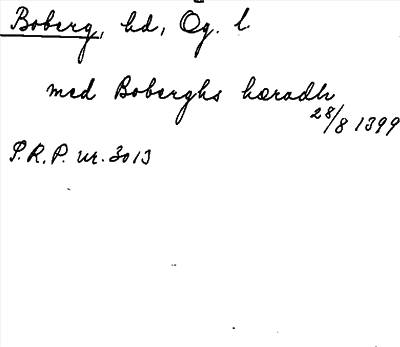 Boberg, hd, Ög. l
med Boberghs hæradh
28/8 1399
S.R.P. nr. 3013